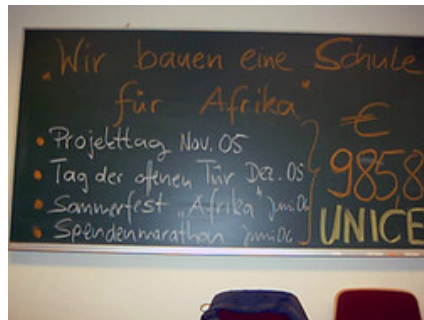 „Wir bauen eine Schule
für Afrika"
• Projekttag Nov. 05
• Tag der offenen Tür Dez. 05
• Sommerfest „Afrika" Juni 06
• Spendenmarathon Juni 06
€
985,8
UNICE